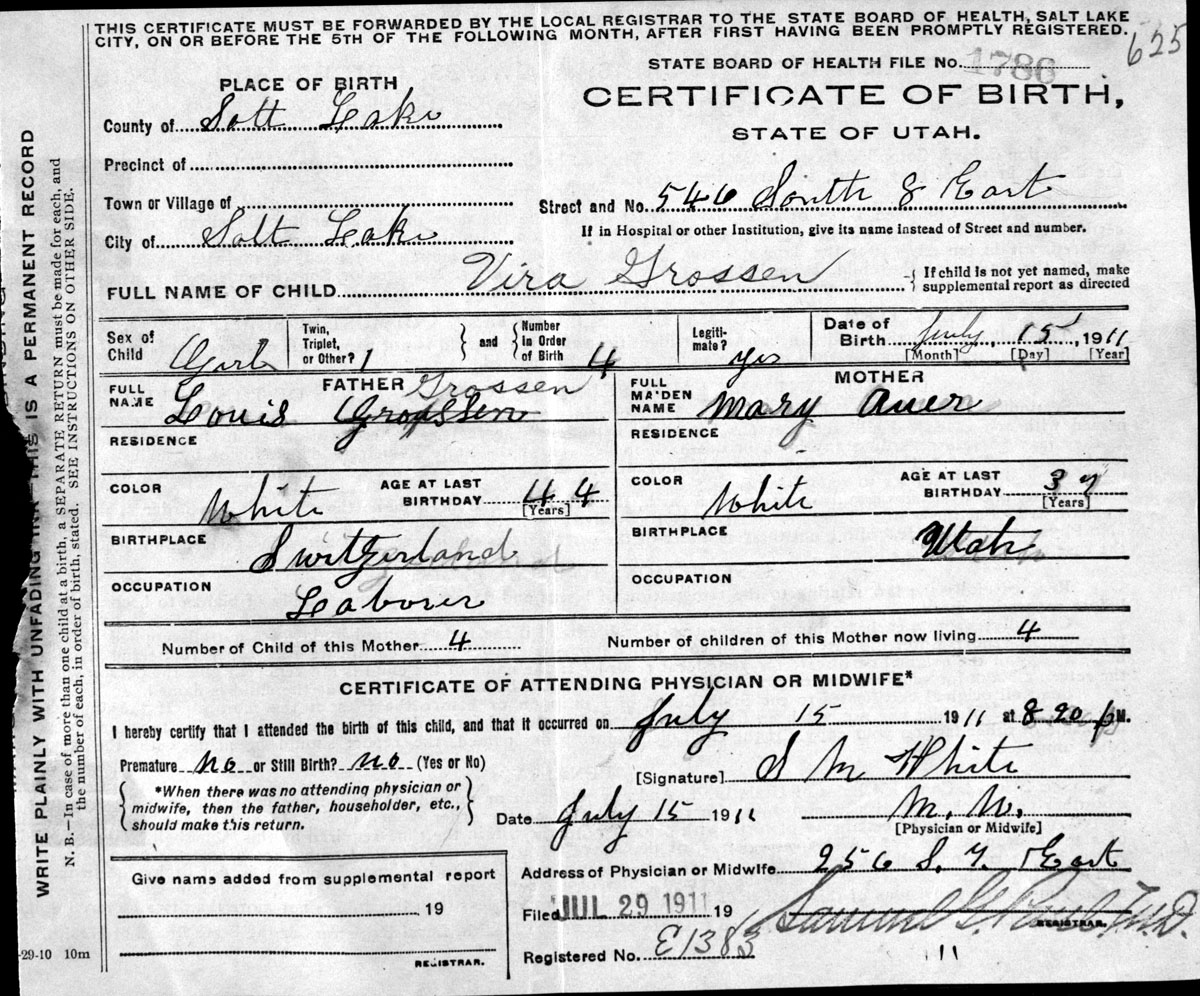 THIS CERTIFICATE MUST BE FORWARDED BY THE LOCAL REGISTRAR TO THE STATE BOARD OF HEALTH, SALT LAKE
CITY, ON OR BEFORE THE 5TH OF THE FOLLOWING MONTH, AFTER FIRST HAVING BEEN PROMPTLY REGISTERED.
625
STATE BOARD OF HEALTH FILE No. 1786
CERTIFICATE OF BIRTH,
STATE OF UTAH.
PLACE OF BIRTH
County of Salt Lake
Precinct of
Town or Village of
City of Salt Lake
Street and No. 546 South 8 East
If in Hospital or other Institution, give its name instead of Street and number.
FULL NAME OF CHILD Vira Grossen
{ If child is not yet named, make
supplemental report as directed
Sex of Child Girl
Twin, Triplet, or Other? 1 } and { Number In Order of Birth 4
Legiti-mate? yes
Date of Birth July, 15, 1911
[Month] [Day] [Year]
FATHER
FULL NAME Louis Grossen
RESIDENCE
COLOR White AGE AT LAST BIRTHDAY 44 [Years]
BIRTHPLACE Switzerland
OCCUPATION Laborer
MOTHER
FULL MAIDEN NAME Mary Auer
RESIDENCE
COLOR White AGE AT LAST BIRTHDAY 37 [Years]
BIRTHPLACE Utah
OCCUPATION
Number of Child of this Mother 4 Number of children of this Mother now living 4
CERTIFICATE OF ATTENDING PHYSICIAN OR MIDWIFE*
I hereby certify that I attended the birth of this child, and that it occurred on July 15 1911 at 8 20 p M.
Premature no or Still Birth? no (Yes or No)
{ *When there was no attending physician or
midwife, then the father, householder, etc.,
should make this return. }
[Signature] S M White
Date July 15 1911 M. W.
[Physician or Midwife]
Address of Physician or Midwife 256 S. 7. East
Give name added from supplemental report
19
REGISTRAR.
Filed JUL 29 1911 19
Samuel G. M.D.
REGISTRAR.
Registered No. E1383
11
-29-10 10m
WRITE PLAINLY WITH UNFADING INK THIS IS A PERMANENT RECORD
N. B.—In case of more than one child at a birth, a SEPARATE RETURN must be made for each, and
the number of each, in order of birth, stated. SEE INSTRUCTIONS ON OTHER SIDE.